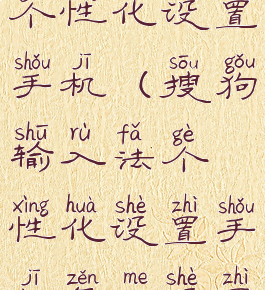 个性化设置
shǒu jī sōu gǒu
手机(搜狗
shū rù fǎ gè
输入法个
xìng huà shè zhì shǒu
性化设置手
jī zěn me shè zhì